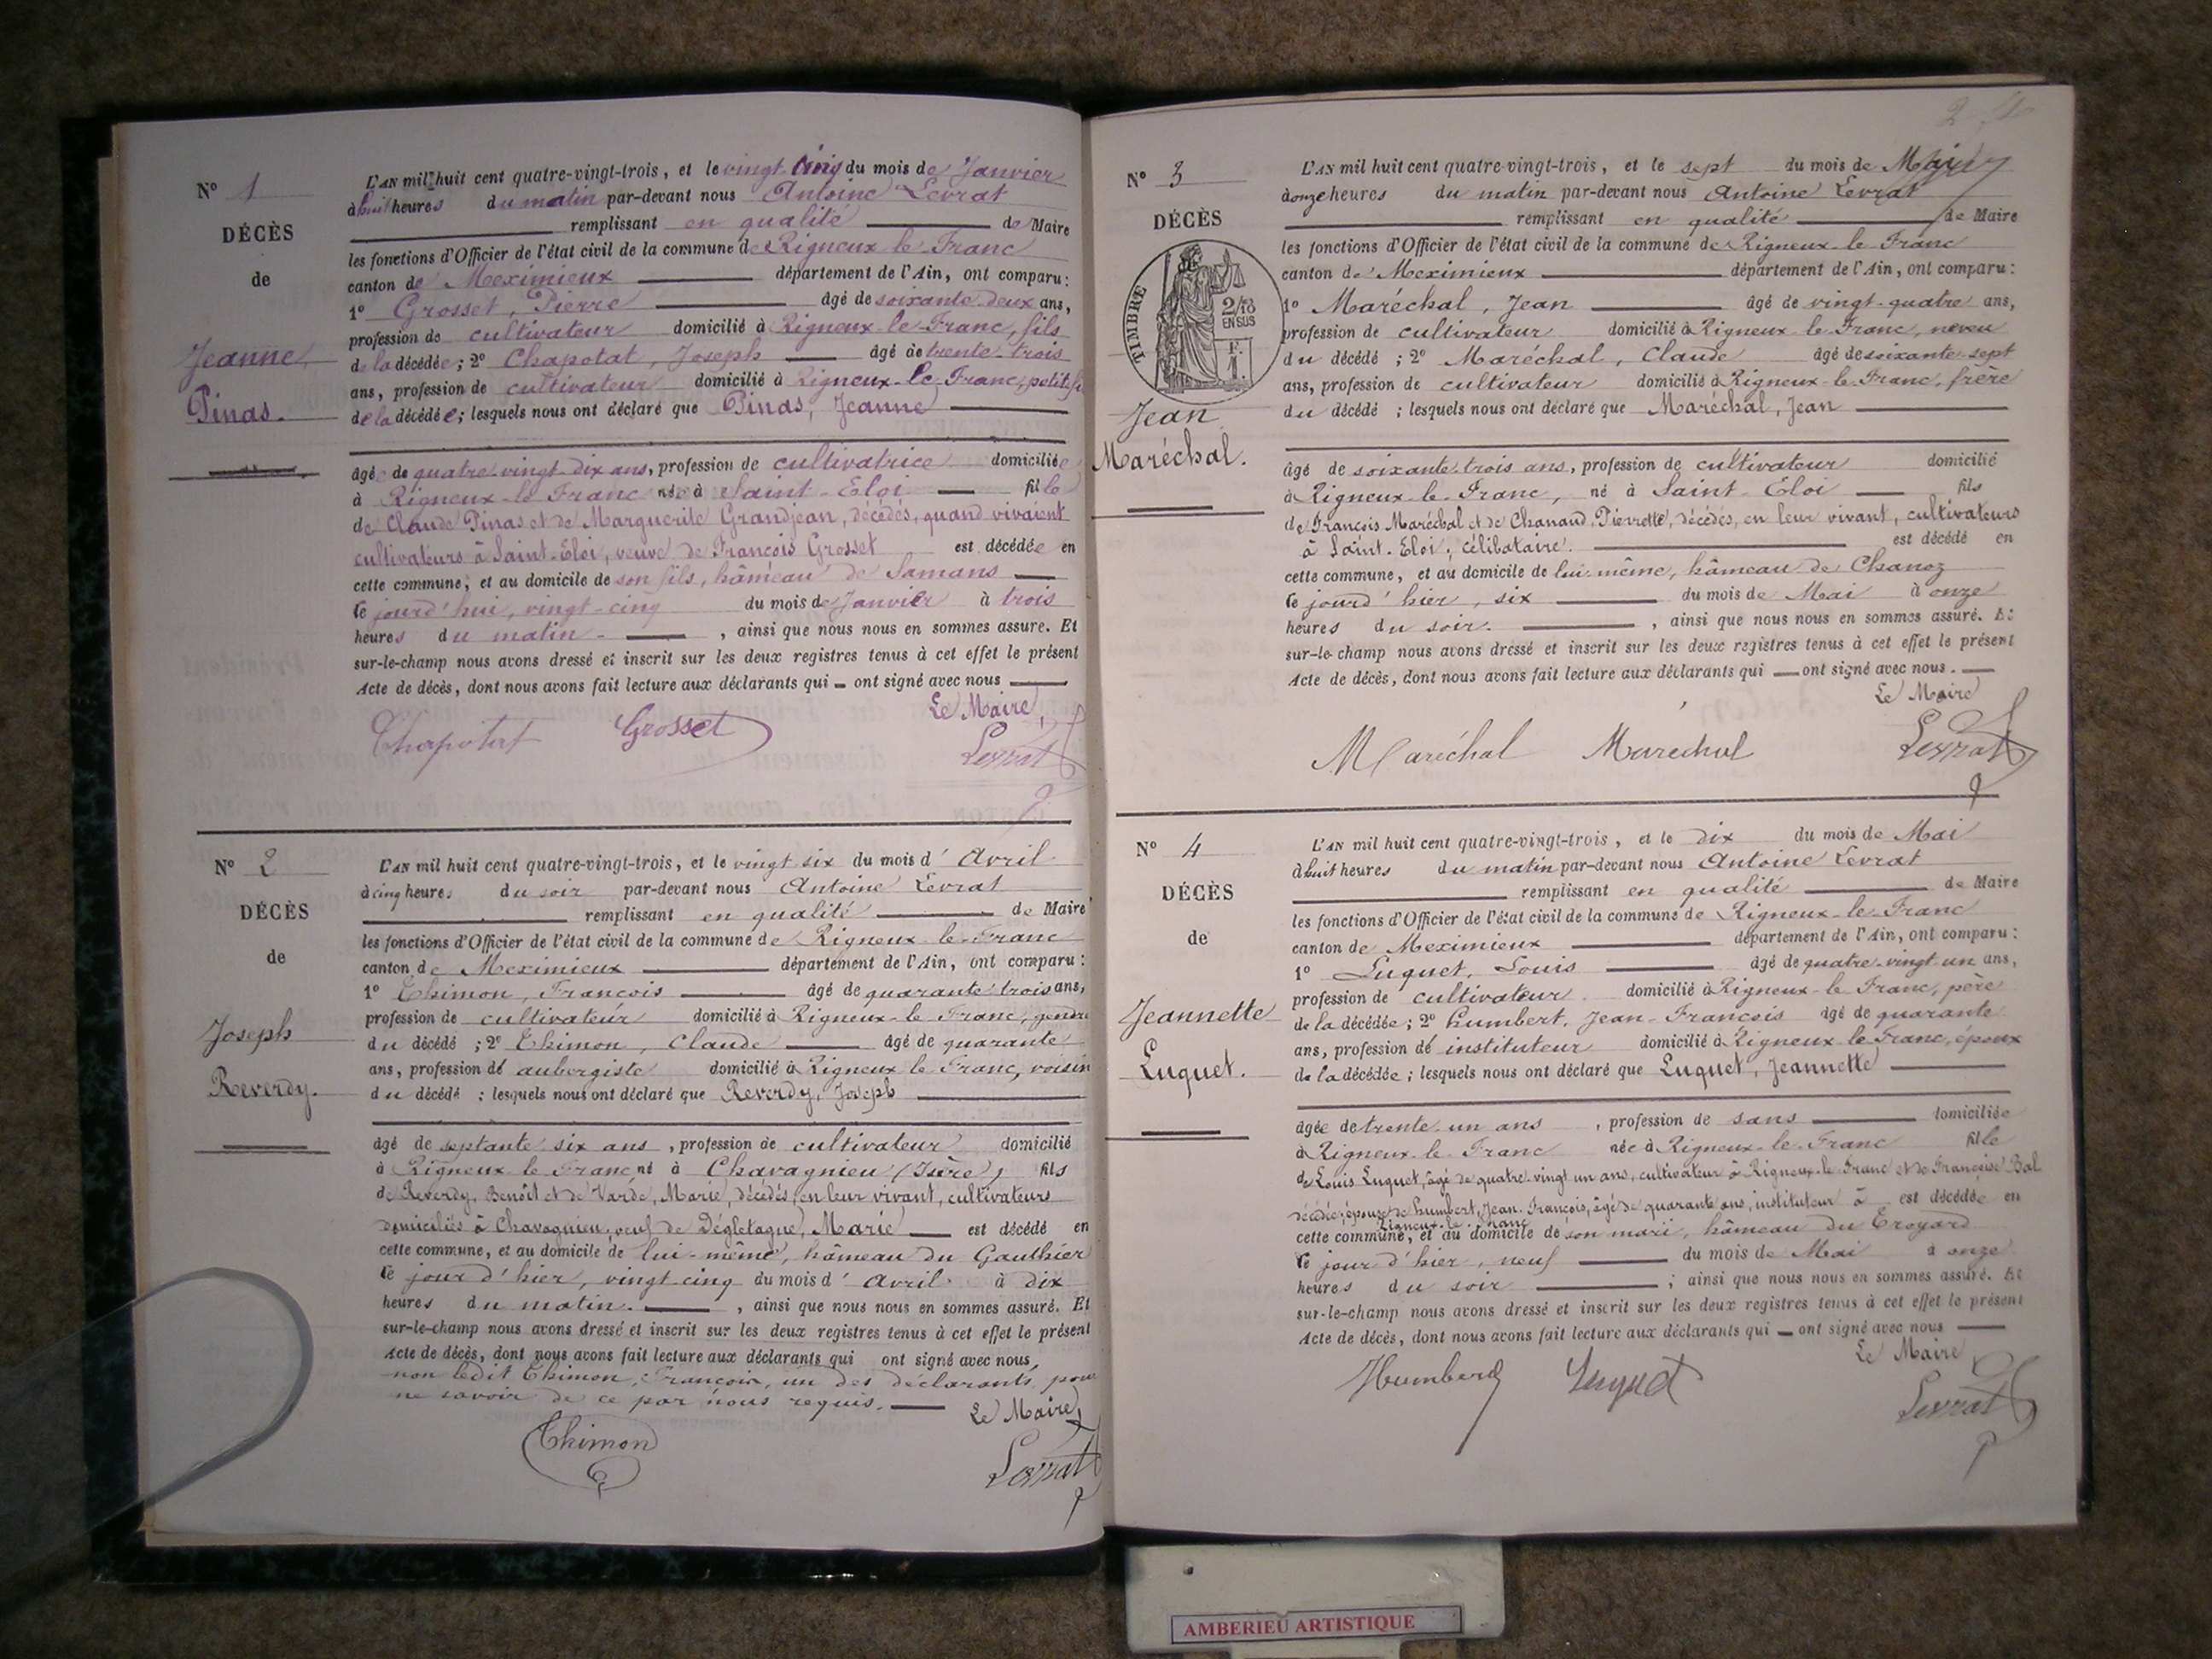 N° 1
DÉCÈS
de
Jeanne
Pinas.
L'AN mil huit cent quatre-vingt-trois, et le vingt cinq du mois de Janvier
à huit heures du matin par-devant nous Antoine Levrat
remplissant en qualité de Maire
les fonctions d'Officier de l'état civil de la commune de Rigneux le Franc
canton de Meximieux département de l'Ain, ont comparu :
1° Grosset, Pierre âgé de soixante deux ans,
profession de cultivateur domicilié à Rigneux-le-Franc, fils
de la décédée ; 2° Chapotat, Joseph âgé de trente-trois
ans, profession de cultivateur domicilié à Rigneux-le Franc, petit-fi
de la décédée ; lesquels nous ont déclaré que Pinas, Jeanne
âgée de quatre-vingt-dix ans, profession de cultivatrice domiciliée
à Rigneux-le Franc née à Saint-Eloi fille
de Claude Pinas et de Marguerite Grandjean, décédés, quand vivaient
cultivateurs à Saint-Eloi, veuve de François Grosset est décédée en
cette commune, et au domicile de son fils, hâmeau de Samans
le jourd'hui, vingt-cinq du mois de Janvier à trois
heures du matin - , ainsi que nous nous en sommes assuré. Et
sur-le-champ nous avons dressé et inscrit sur les deux registres tenus à cet effet le présent
Acte de décès, dont nous avons fait lecture aux déclarants qui ont signé avec nous
Le Maire,
Chapotat Grosset Levrat
N° 2
DÉCÈS
de
Joseph
Reverdy.
L'AN mil huit cent quatre-vingt-trois, et le vingt six du mois d' Avril
à cinq heures du soir par-devant nous Antoine Levrat
remplissant en qualité de Maire
les fonctions d'Officier de l'état civil de la commune de Rigneux le-Franc
canton de Meximieux département de l'Ain, ont comparu :
1° Thimon, François âgé de quarante-trois ans,
profession de cultivateur domicilié à Rigneux-le Franc, gendre
du décédé ; 2° Thimon, Claude âgé de quarante
ans, profession de aubergiste domicilié à Rigneux le Franc, voisin
du décédé ; lesquels nous ont déclaré que Reverdy, Joseph
âgé de septante-six ans , profession de cultivateur domicilié
à Rigneux le Franc né à Chavagnieu (Isère) fils
de Reverdy, Benoît et de Varde, Marie, décédés, en leur vivant, cultivateurs
domiciliés à Chavagnieu, veuf de Dégletagne, Marie est décédé en
cette commune, et au domicile de lui-même, hâmeau du Gauthier
le jour d'hier, vingt-cinq du mois d' Avril à dix
heures du matin. , ainsi que nous nous en sommes assuré. Et
sur-le-champ nous avons dressé et inscrit sur les deux registres tenus à cet effet le présent
Acte de décès, dont nous avons fait lecture aux déclarants qui ont signé avec nous,
non ledit Thimon, François, un des déclarants, pour
ne savoir de ce par nous requis.
Le Maire,
Thimon Levrat
2
N° 3
DÉCÈS
TIMBRE
2/10
EN SUS
F.
1.
Jean
Maréchal.
L'AN mil huit cent quatre-vingt-trois, et le sept du mois de Mai
à onze heures du matin par-devant nous Antoine Levrat
remplissant en qualité de Maire
les fonctions d'Officier de l'état civil de la commune de Rigneux-le Franc
canton de Meximieux département de l'Ain, ont comparu :
1° Maréchal, Jean âgé de vingt-quatre ans,
profession de cultivateur domicilié à Rigneux le Franc, neveu
du décédé ; 2° Maréchal, Claude âgé de soixante-sept
ans, profession de cultivateur domicilié à Rigneux-le-Franc, frère
du décédé ; lesquels nous ont déclaré que Maréchal, Jean
âgé de soixante-trois ans, profession de cultivateur domicilié
à Rigneux-le-Franc, né à Saint-Eloi fils
de François Maréchal et de Chanaud, Pierrette, décédés, en leur vivant, cultivateurs
à Saint-Eloi, célibataire. est décédé en
cette commune, et au domicile de lui-même, hâmeau de Chanoz
le jourd'hier, six du mois de Mai à onze
heures du soir. , ainsi que nous nous en sommes assuré. Et
sur-le-champ nous avons dressé et inscrit sur les deux registres tenus à cet effet le présent
Acte de décès, dont nous avons fait lecture aux déclarants qui ont signé avec nous.
Le Maire
Maréchal Maréchal Levrat
N° 4
DÉCÈS
de
Jeannette
Luquet.
L'AN mil huit cent quatre-vingt-trois, et le dix du mois de Mai
à huit heures du matin par-devant nous Antoine Levrat
remplissant en qualité de Maire
les fonctions d'Officier de l'état civil de la commune de Rigneux-le-Franc
canton de Meximieux département de l'Ain, ont comparu :
1° Luquet, Louis âgé de quatre-vingt-un ans,
profession de cultivateur domicilié à Rigneux-le Franc, père
de la décédée ; 2° Humbert, Jean-François âgé de quarante
ans, profession de instituteur domicilié à Rigneux-le Franc, époux
de la décédée ; lesquels nous ont déclaré que Luquet, Jeannette
âgée de trente-un ans , profession de sans domiciliée
à Rigneux-le-Franc née à Rigneux-le-Franc fille
de Louis Luquet, âgé de quatre-vingt un ans, cultivateur à Rigneux-le-Franc et de Françoise Bal
décédée, épouse de Humbert, Jean-François, âgé de quarante ans, instituteur à est décédée en
Rigneux-le-Franc
cette commune, et au domicile de son mari, hâmeau du Troyard
le jour d'hier, neuf du mois de Mai à onze
heures du soir ; ainsi que nous nous en sommes assuré. Et
sur-le-champ nous avons dressé et inscrit sur les deux registres tenus à cet effet le présent
Acte de décès, dont nous avons fait lecture aux déclarants qui ont signé avec nous
Le Maire,
Humbert Luquet Levrat
AMBERIEU ARTISTIQUE